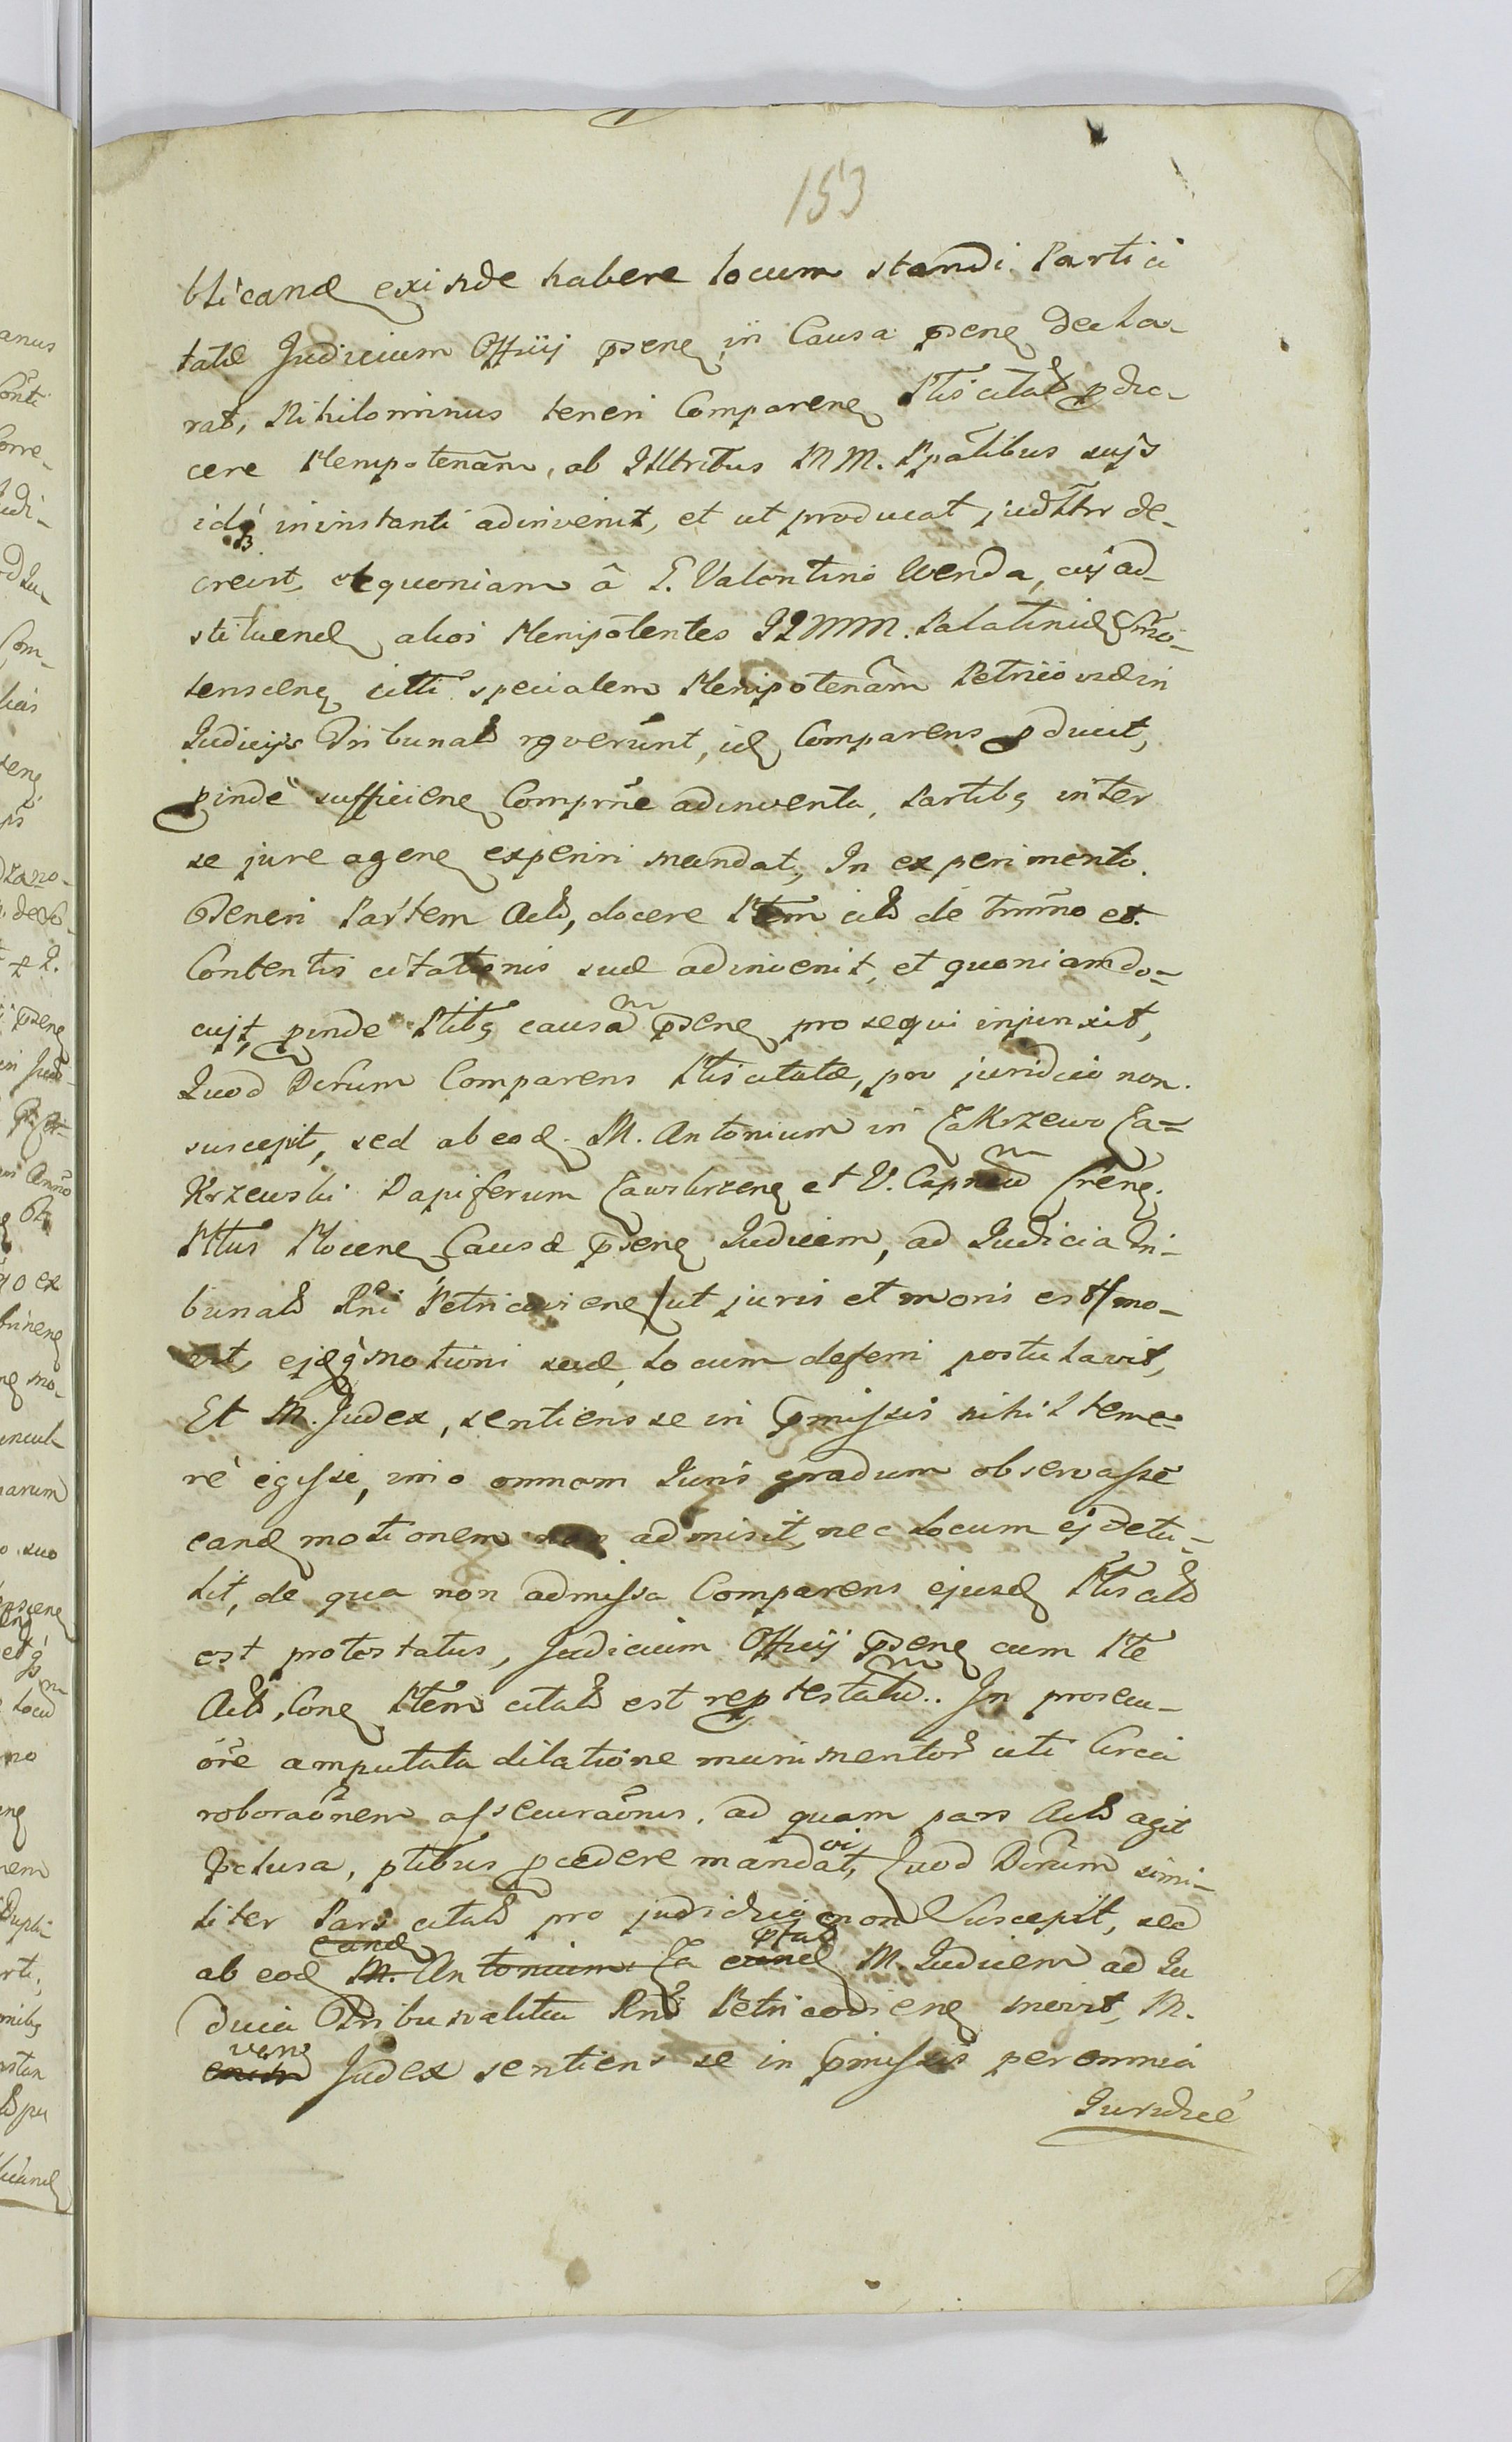 153
blicand exinde habere locum standi Parti ci
tatæ Judicium Officij psens in Causa psens decla-
rat, Nihilominus teneri Comparens Ptis citatæ produ-
cere Plenipotenãm, ab Illtribus MM. Ppãlibus suis
idq; in instanti adinvenit, et ut producat judltr de-
crevit, et quoniam â G. Valentino Wenda, cuj ad
stituend alios Plenipõtentes IIMMM. Palatinid
tensens citti specialem Plenipotenãm Petricoviæ in
Judicijs Tribunal rgverunt, id Comparens pducit,
pindè sufficiens Comprne adinventa, Partibq inter
se jure agens experiri mandat, In experimento
Teneri Partem Act, docere Ptem cit de tmmno et
Contentis citationis suæ adinvenit, et quoniam do-
cujt, pinde Ptibq causam psens prosequi injunxit,
Quod Dcrum Comparens Ptis citatæ, pro juridico non
suscepit, sed ab eod M. Antonium in Zakrzewo Za-
Krzewski Dapiferum Zawskrzens et V. Capneum Crens.
Pltus Plocens Causæ psens Judicem, ad Judicia Tri-
bunal Rni Petricoviens /ut juris et moris est/ mo-
vit, ejdq motioni suæ, Locum deferri postulavit,
Et M. Judex, sentiens se in pmissis nihil teme-
rè egisse, imo omnem Juris gradum observasse
eand motionem non admisit, nec Locum ej detu-
lit, de qua non admissa Comparens ejusd Ptis cit
est protestatus, Judicium Officij psens cum Pte
Act, Con Ptem citat est reptestatum. In prosecu-
õre amputata dilatione munimentor uti Circa
roboraõnem assecuraõnis, ad quam pars Act agit
pclusa, ptibus pcedere mandavit, Quod Dcrum simi-
liter Pars citat pro juridico non Suscepit, sed
ab eod M. Antonium Za eund ptum M. Judicem ad Ju
dicia Tribunalitia Rni Petricoviens movit, M.
vero Judex sentiens se in pmissis per omnia
Juridicè